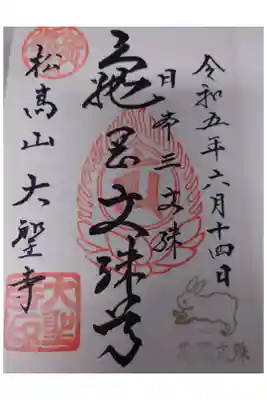 令和五年六月十四日
日本三文殊
亀岡文殊尊
松高山 大聖寺
大聖寺